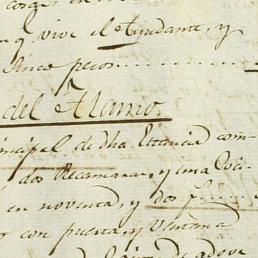 que vive el Ayudante, y
Cinco pesos
del Alamo.
cipal de dha. Estancia com-
dos Recamaras, y una Coci-
en noventa, y dos p
con puerta y Ventana
de adove